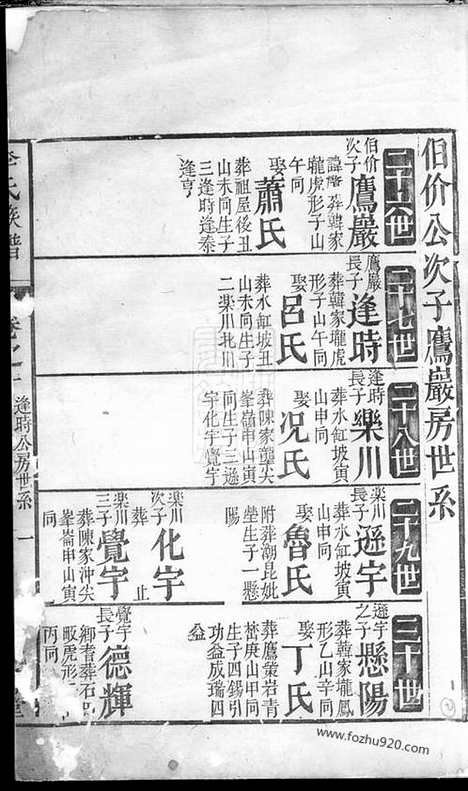 伯价公次子鷹巖房世系
二十六世
伯价
次子
鷹巖
葬韓家
壠虎形子山
午同
娶
蕭氏
葬祖屋後丑
山未同生子
三逢時逢泰
逢亨
二十七世
鷹巖
長子
逢時
葬韓家壠虎
形子山午同
娶
呂氏
葬水缸坡丑
山未同生子
二楽川北川
二十八世
逢時
長子
樂川
葬水缸坡寅
山申同
娶
况氏
葬陳家壟尖
峯崙申山寅
同生子三遜
宇化宇覺宇
二十九世
楽川
長子
遜宇
葬水缸坡寅
山申同
娶
魯氏
附葬潮昆妣
坐生子一懸
陽
楽川
次子
化宇
葬
止
楽川
三子
覺宇
葬陳家沖尖
峯崙申山寅
同
三十世
遜宇
之子
懸陽
葬韓家壠鳳
形乙山辛同
娶
丁氏
葬鷹策岩青
山甲同
生子四錫引
功益成瑞四
益
覺宇
長子
德輝
鄉耆葬石
畈虎形
丙同
氏族譜
卷之
逢時公房世系
一
堂
www.fozhu920.com